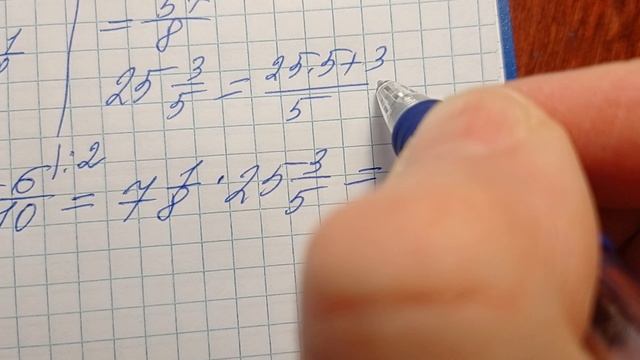 = 5/8
25 3/5 = 25·5+3/5
6/10 |:2 = 7 1/8 · 25 3/5 =